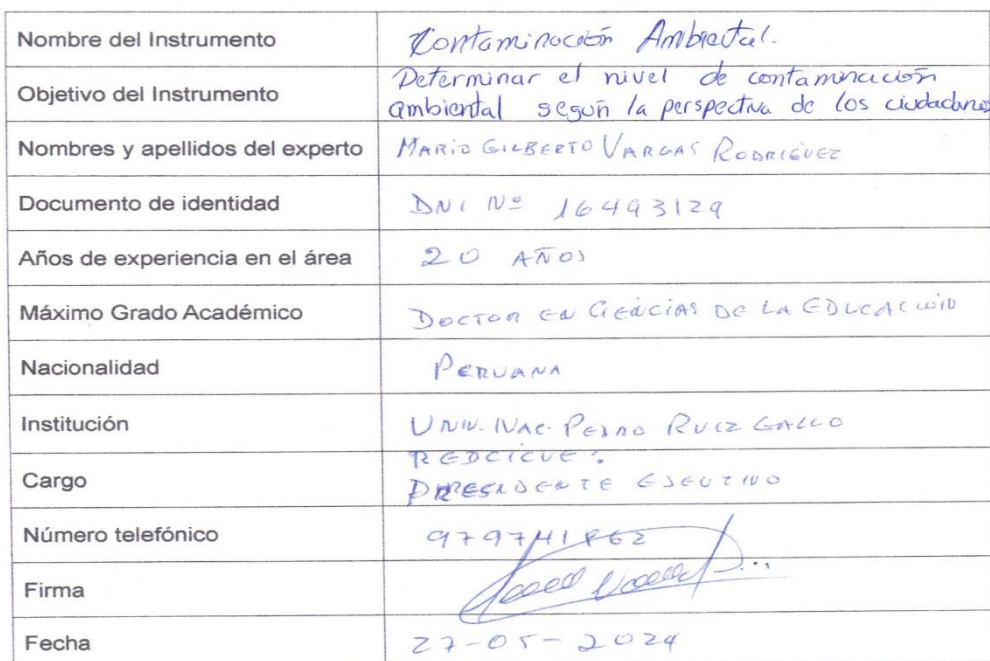 Nombre del Instrumento Contaminación Ambiental.
Objetivo del Instrumento Determinar el nivel de contaminación
ambiental según la perspectiva de los ciudadanos
Nombres y apellidos del experto MARIO GILBERTO VARGAS RODRIGUEZ
Documento de identidad DNI Nº 16493129
Años de experiencia en el área 20 AÑOS
Máximo Grado Académico DOCTOR EN CIENCIAS DE LA EDUCACION
Nacionalidad PERUANA
Institución UNIV. NAC. PEDRO RUIZ GALLO
Cargo REDCICUE:
PRESIDENTE EJECUTIVO
Número telefónico
Firma
Fecha 27-05-2024